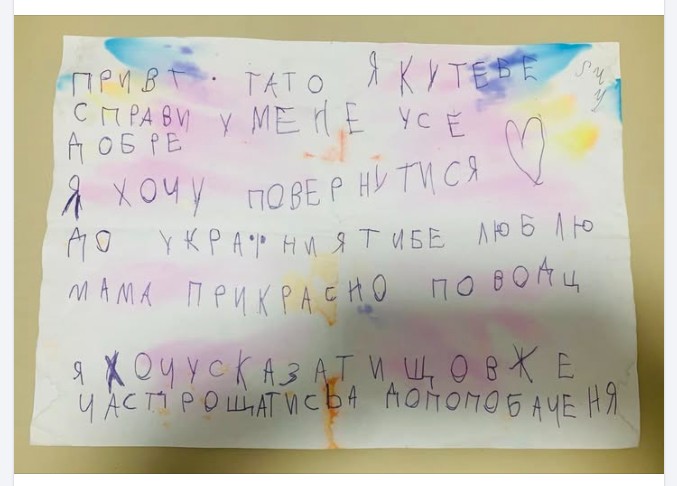 ПРИВТ · ТАТО Я КУТЕБЕ
СПРАВИ У МЕНЕ УСЕ
ДОБРЕ
Я ХОЧУ ПОВЕРНУТИСЯ
ДО УКРАЇНИ Я ТИБЕ ЛЮБЛЮ
МАМА ПРИКРАСНО ПОВОДЦ
Я ХОЧУ СКАЗАТИ ЩО ВЖЕ
ЧАС ПРОЩАТИСЬА ДОПОПОБАЧЕНЯ